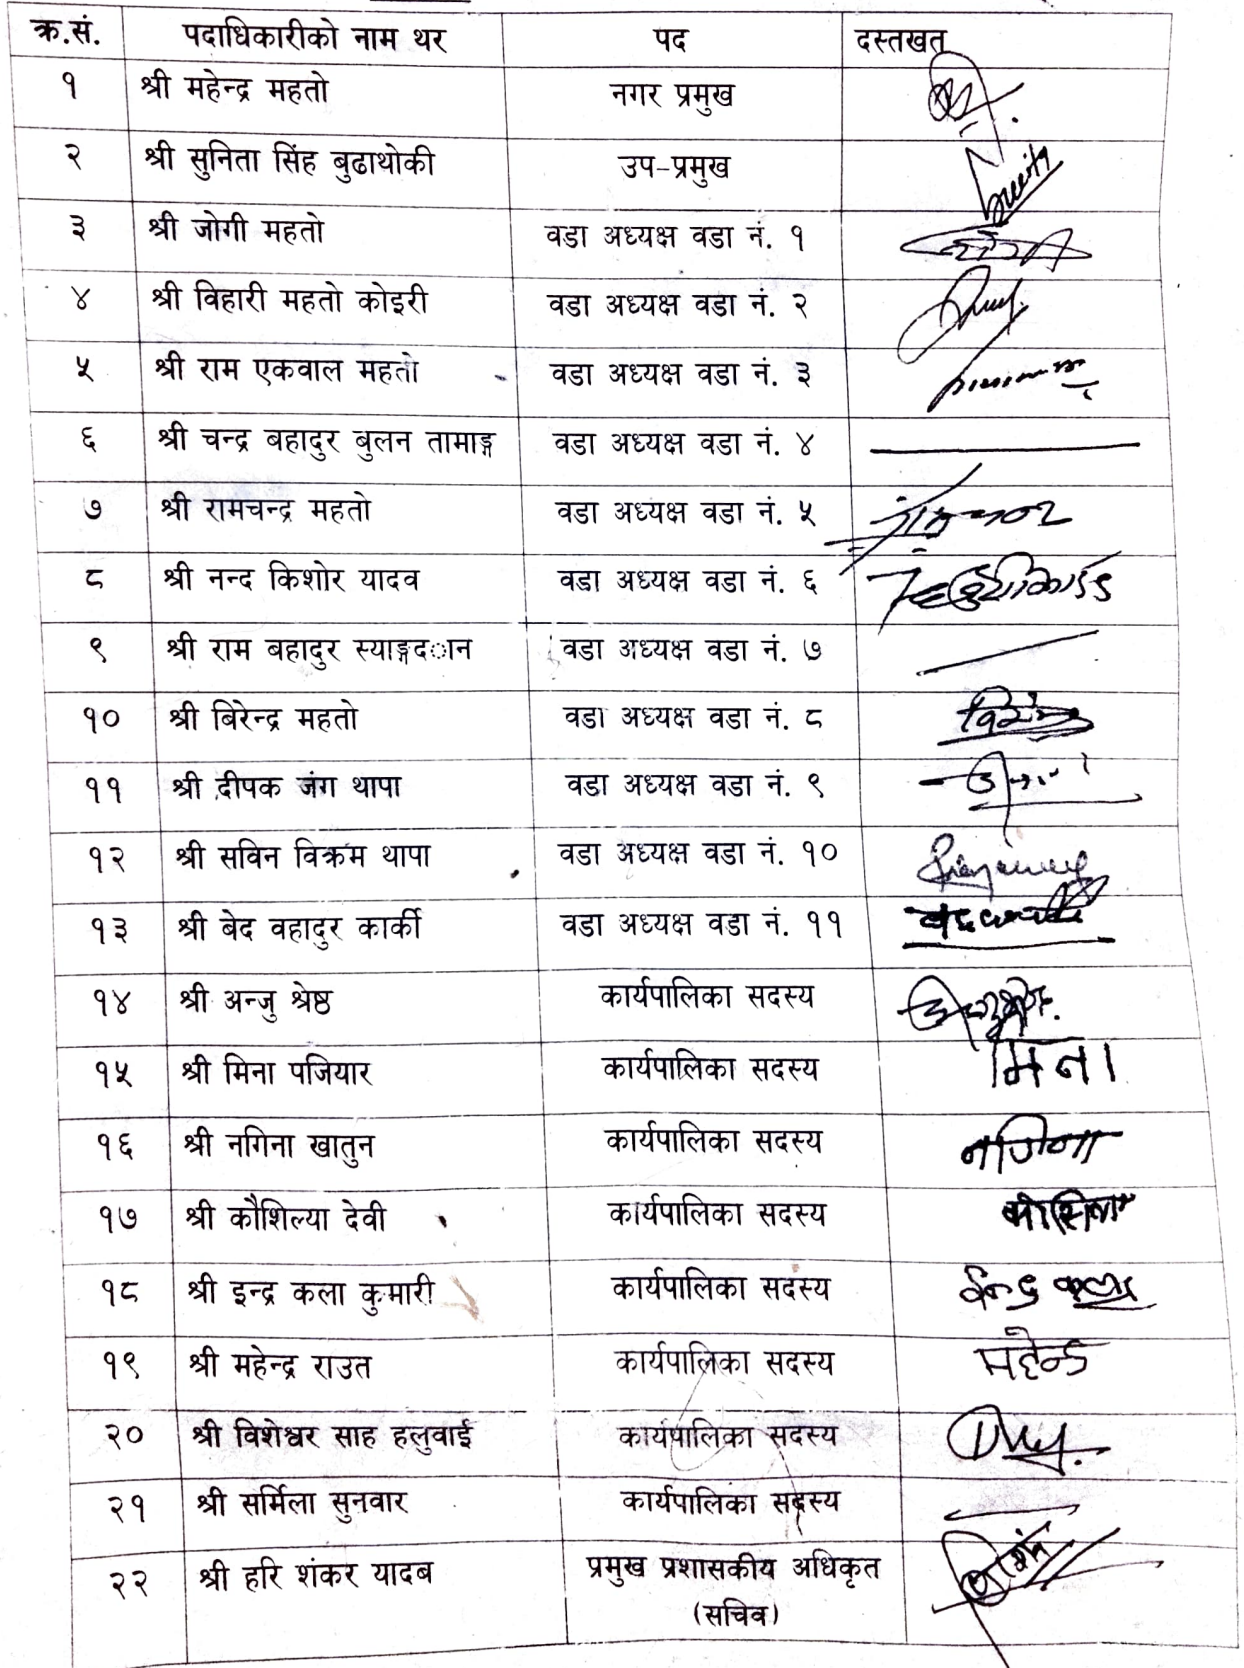 क्र.सं. पदाधिकारीको नाम थर पद दस्तखत
१ श्री महेन्द्र महतो नगर प्रमुख
२ श्री सुनिता सिंह बुढाथोकी उप-प्रमुख
३ श्री जोगी महतो वडा अध्यक्ष वडा नं. १
४ श्री विहारी महतो कोइरी वडा अध्यक्ष वडा नं. २
५ श्री राम एकवाल महतो वडा अध्यक्ष वडा नं. ३
६ श्री चन्द्र बहादुर बुलन तामाङ्ग वडा अध्यक्ष वडा नं. ४
७ श्री रामचन्द्र महतो वडा अध्यक्ष वडा नं. ५
८ श्री नन्द किशोर यादव वडा अध्यक्ष वडा नं. ६
९ श्री राम बहादुर स्याङ्गद◌ान वडा अध्यक्ष वडा नं. ७
१० श्री बिरेन्द्र महतो वडा अध्यक्ष वडा नं. ८
११ श्री दीपक जंग थापा वडा अध्यक्ष वडा नं. ९
१२ श्री सविन विक्रम थापा वडा अध्यक्ष वडा नं. १०
१३ श्री बेद वहादुर कार्की वडा अध्यक्ष वडा नं. ११
१४ श्री अन्जु श्रेष्ठ कार्यपालिका सदस्य
१५ श्री मिना पजियार कार्यपालिका सदस्य मिना
१६ श्री नगिना खातुन कार्यपालिका सदस्य नगिना
१७ श्री कौशिल्या देवी कार्यपालिका सदस्य
१८ श्री इन्द्र कला कुमारी कार्यपालिका सदस्य ईन्द्र कला
१९ श्री महेन्द्र राउत कार्यपालिका सदस्य महेन्द्र
२० श्री विशेश्वर साह हलुवाई कार्यपालिका सदस्य
२१ श्री सर्मिला सुनवार कार्यपालिका सदस्य
२२ श्री हरि शंकर यादब प्रमुख प्रशासकीय अधिकृत
(सचिव)